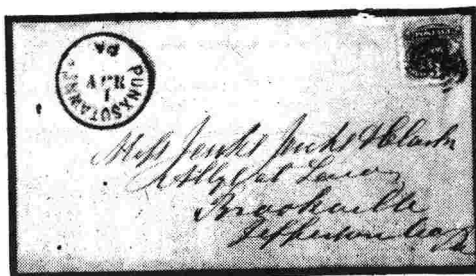 PUNXSUTAWNEY
PA
APR
1
POSTAGE
Messrs Jenks Jenks & Clark
Attys at Law
Brookville
Jefferson Co
Pa